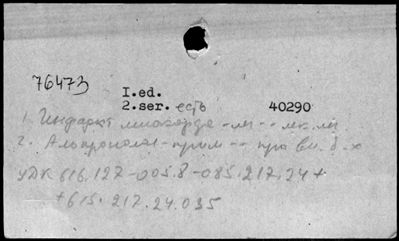 76473
I.ed.
2.ser. есть 40290
1. Инфаркт миокарда -м--лек.м
2. Альпренолол-прим-- при
УДК 616.127-005.8-085.217.24+
+615.217.24.035